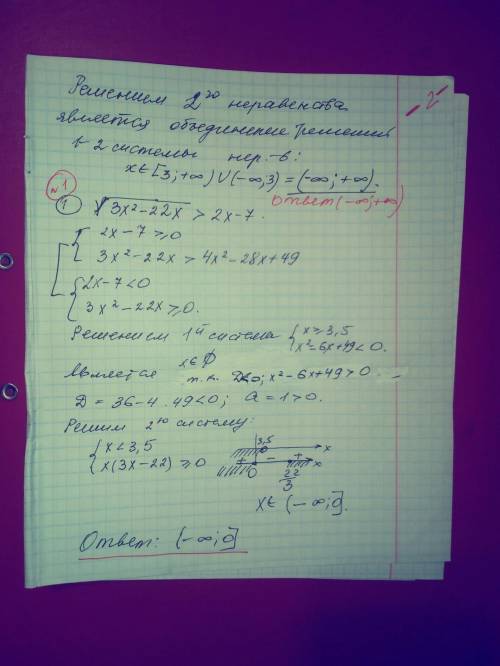 -2-
Решением 2го неравенства
является объединение решений
1-2 системы нер.-в:
x∈[3;+∞)∪(-∞;3)=(-∞;+∞).
Ответ(-∞;+∞)
№1
1 √3x²-22x > 2x-7.
2x-7≥0
3x²-22x > 4x²-28x+49
2x-7<0
3x²-22x≥0.
Решением 1й системы x≥3,5
x²-6x+49<0.
является x∈∅
т.к. D<0; x²-6x+49>0.
D = 36-4·49<0; a=1>0.
Решим 2ю систему:
x<3,5
x(3x-22)≥0
3,5 x
+ - + x
0 22/3
x∈(-∞;0].
Ответ: (-∞;0]